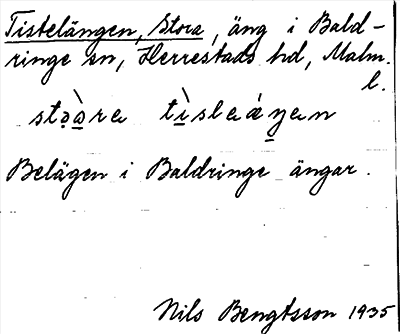 Tistelängen, Stora, äng i Bald-
ringe sn, Herrestads hd, Malm.
l.
stọà̠re tì̠sleá̠ŋen
Belägen i Baldringe ängar.
Nils Bengtsson 1935